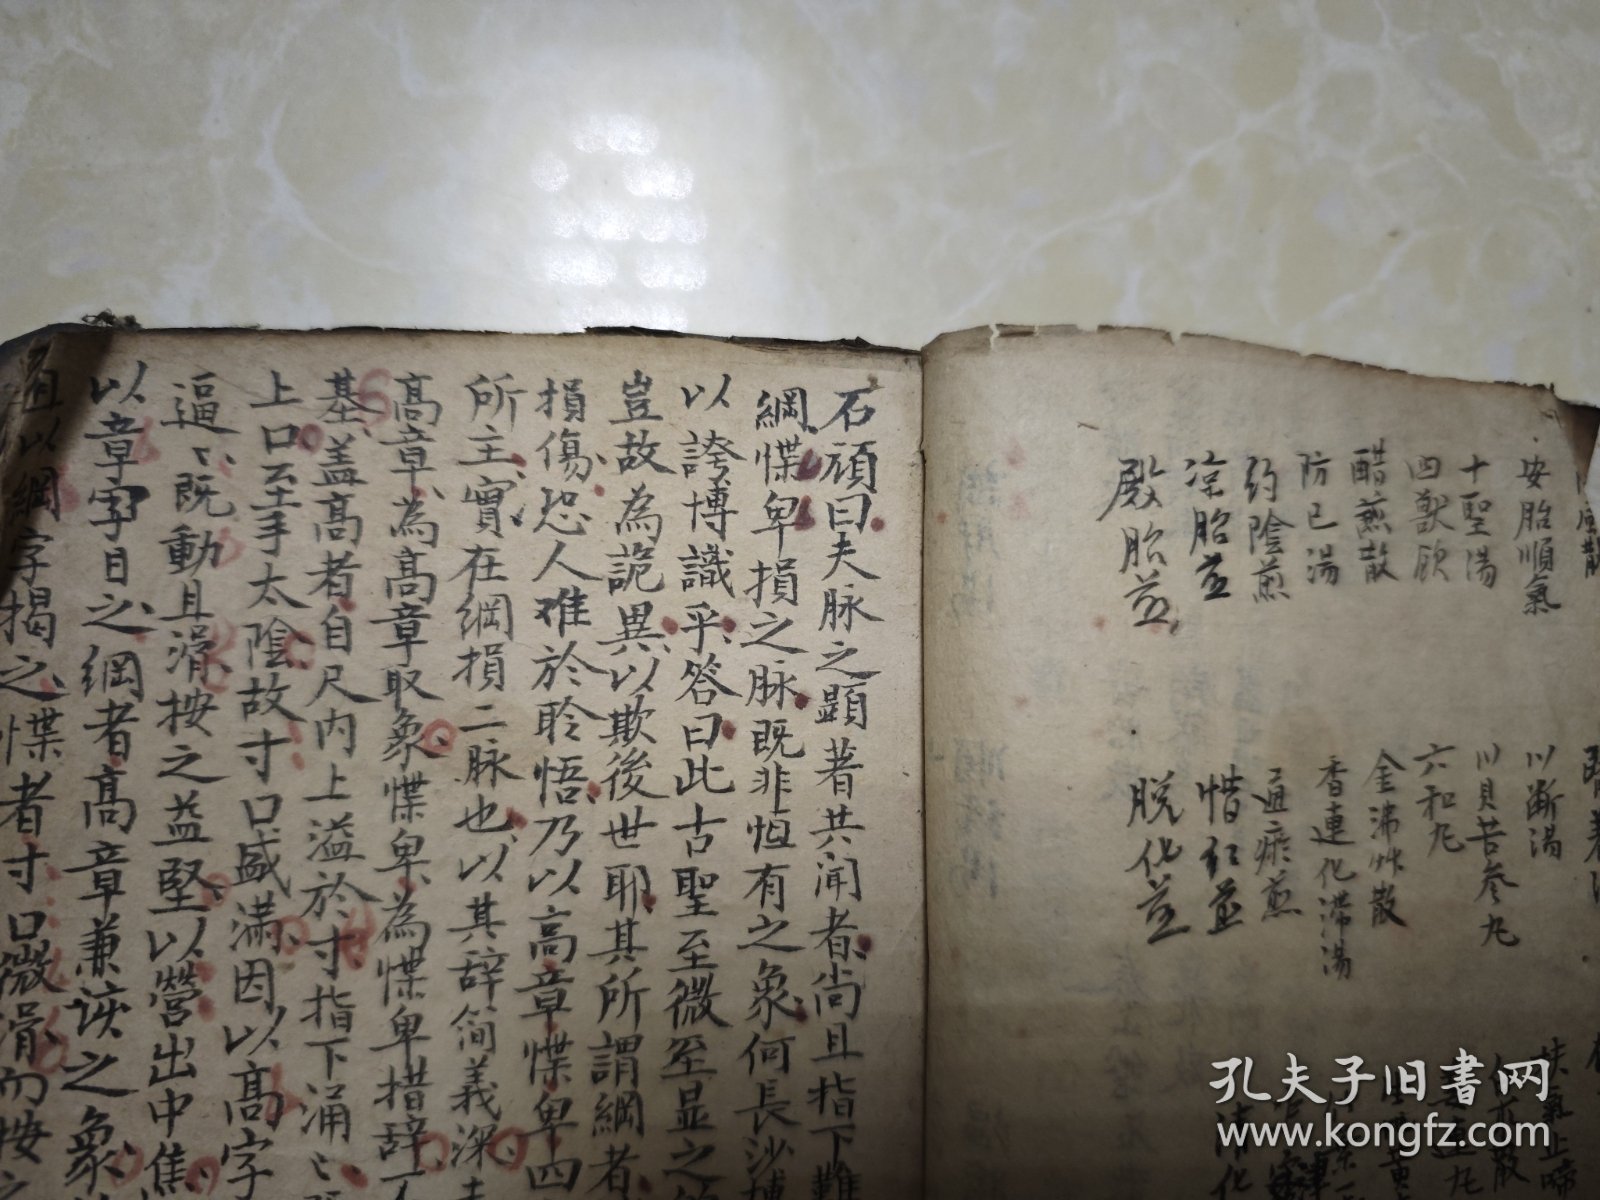 安胎順氣
十聖湯
四獸飲
醋煎散
防已湯
約陰煎
涼胎並
殿胎並
川斷湯
川貝苦參丸
六和丸
金沸草散
香連化滯湯
通瘀煎
惜红並
脱化並
石頑曰夫脉之顕著共闻者尚且指下難
綱惵卑損之脉既非恒有之象何長沙博
以誇博識乎答曰此古聖至微至显之
豈故為詭異以欺後世耶其所謂綱者
損傷恐人难於聆悟乃以高章惵卑四
所主實在綱損二脉也以其辞简義深
高章為高章取象惵卑為惵卑措辞
基盖高者自尺内上溢於寸指下涌
上口至手太陰故寸口盛满因以高字
逼既動且滑按之益堅以營出中焦
以章字目之綱者高章兼該之象
且以綱字揭之惵者寸口微滑而按之
孔夫子旧書网
www.kongfz.com